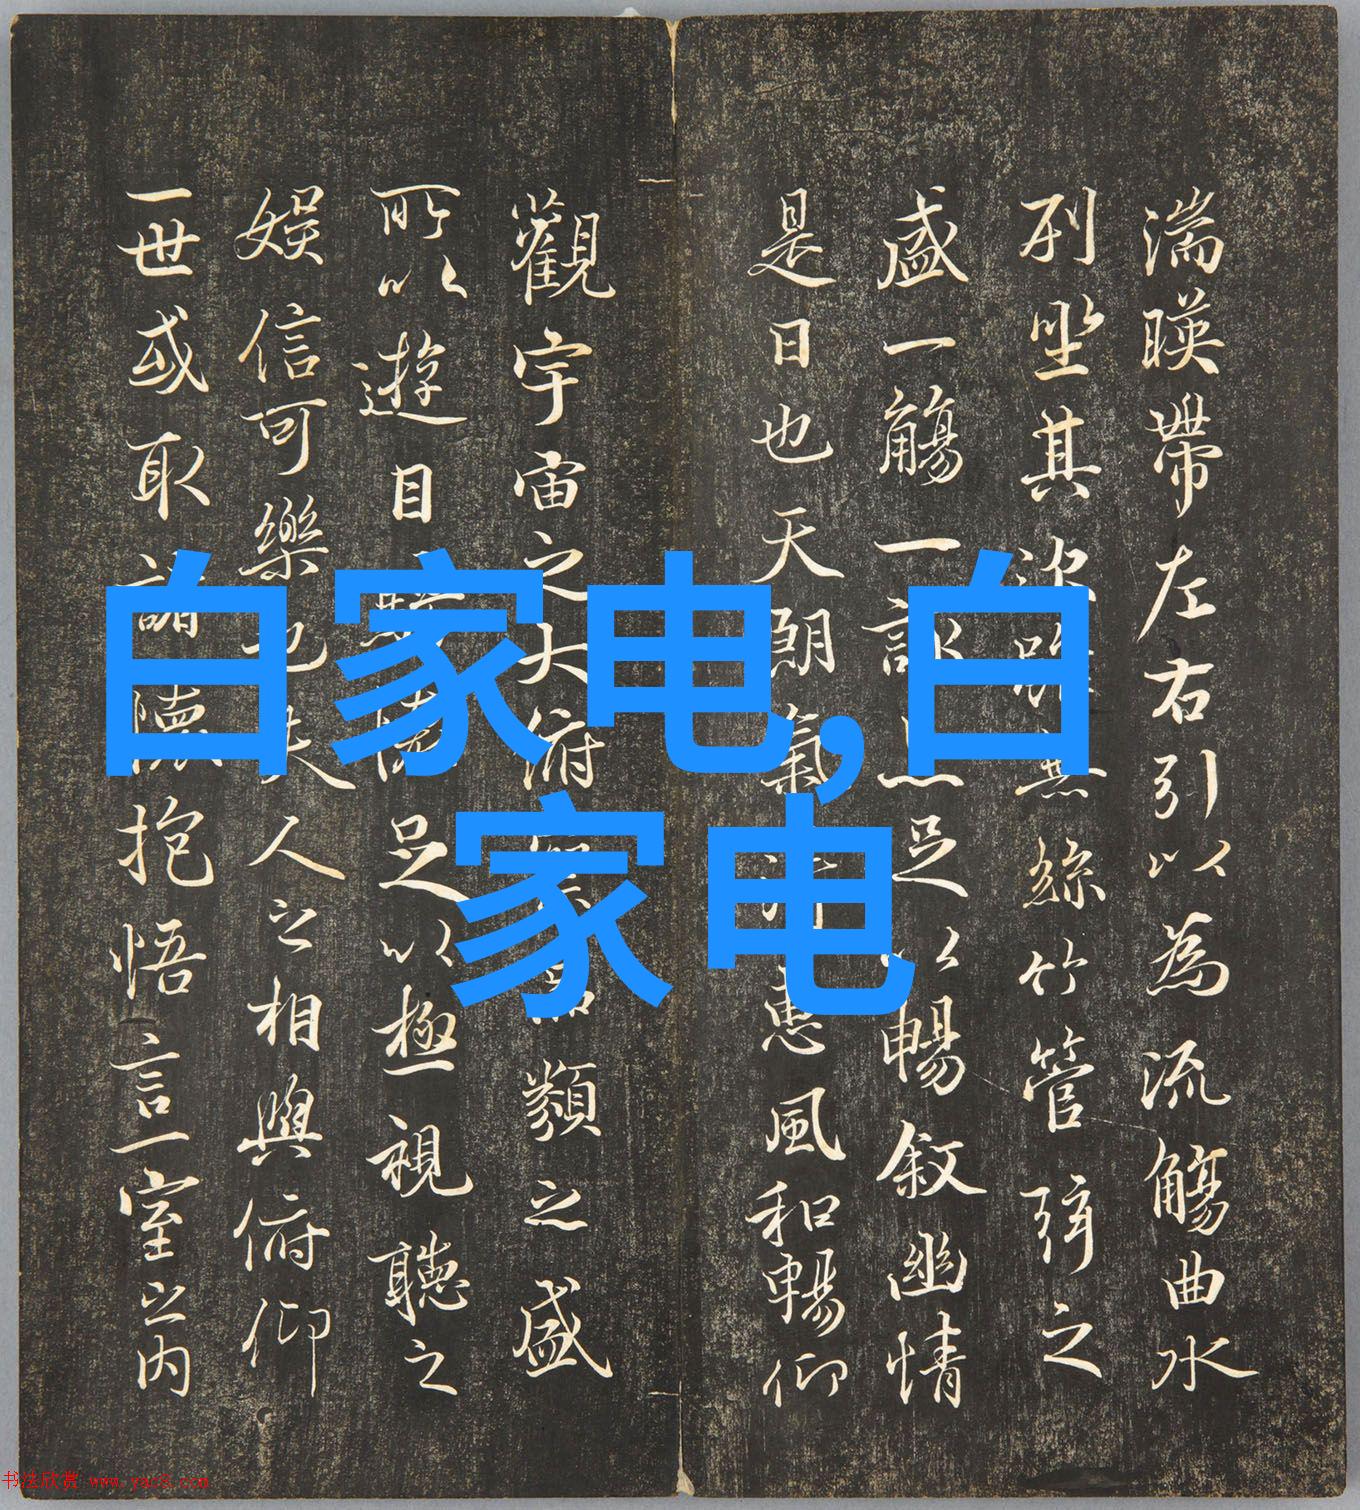 湍暎帶左右引以為流觴曲水
列坐其次雖無絲竹管弦之
盛一觴一詠足以暢敘幽情
是日也天朗氣惠風和暢仰
觀宇宙之大俯類之盛
所以遊目懷足以極視聽之
娛信可樂也夫人之相與俯仰
一世或取諸懷抱悟言一室之内
白家电,白
家电
书法欣赏 www.yac8.com